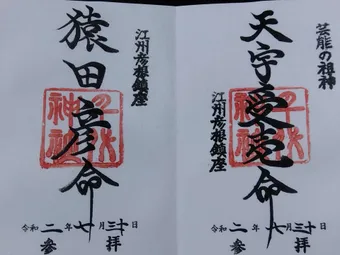 芸能の祖神
天宇受売命
江州彦根鎮座
千代
神社
令和二年七月三十日
参拝
江州彦根鎮座
猿田彦命
千代
神社
令和二年七月三十日
参拝